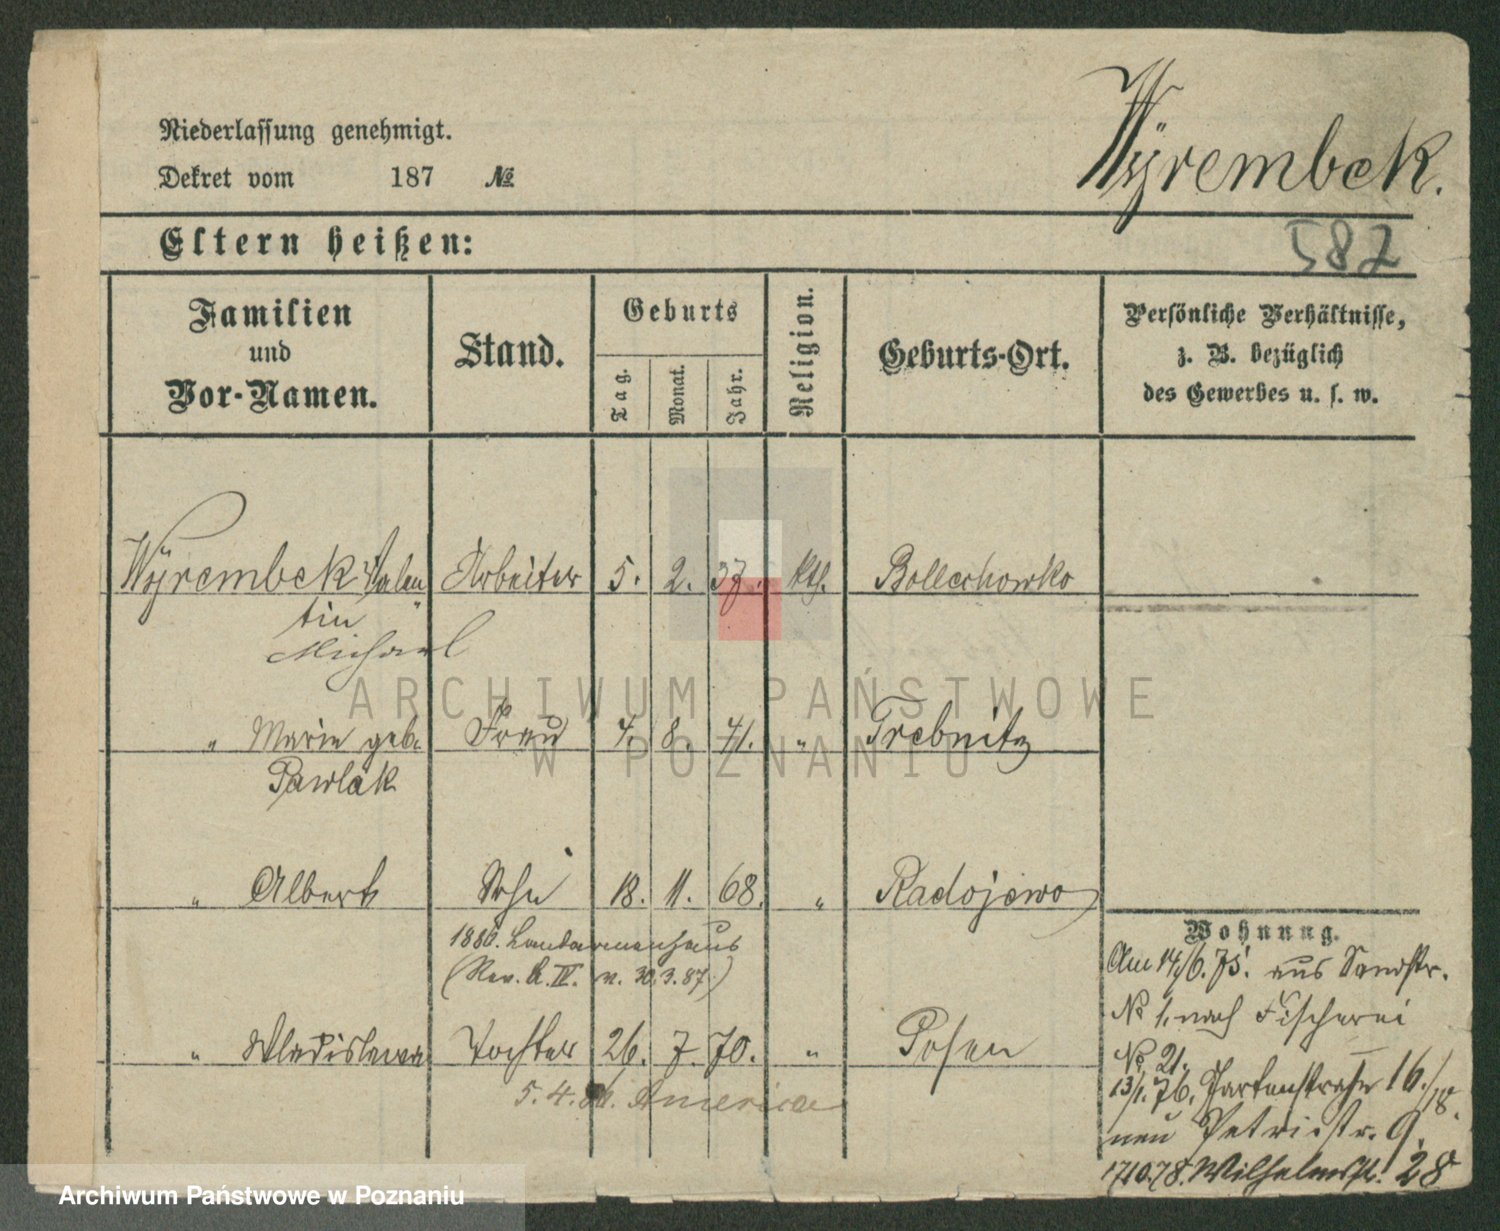 Niederlassung genehmigt.
Dekret vom 187 №
Wyrembek.
Eltern heißen:
587
Familien und Vor-Namen.
Stand.
Geburts
Tag.
Monat.
Jahr.
Religion.
Geburts-Ort.
Persönliche Verhältnisse,
z. B. bezüglich
des Gewerbes u. s. w.
Wyrembek Valen Arbeiter 5. 2. 37. kth. Bollechowko
tin
Michael
" Marie geb. Frau 7. 8. 41. " Trebnitz
Pawlak
" Albert Sohn 18. 11. 68. " Radojewo
1886. Landarmenhaus
(Rev. A. IV. v. 30.3.87.)
" Wladislawa Tochter 26. 7. 70. " Posen
5. 4. 86. America
Wohnung.
Am 14/6. 75. aus Sandstr.
№ 1. nach Fischerei
№ 21.
13/1. 76. Gartenstraße 16./18.
neu Petristr. 9.
17.10.78. Wilhelmstr. 28
ARCHIWUM PAŃSTWOWE
W POZNANIU
Archiwum Państwowe w Poznaniu